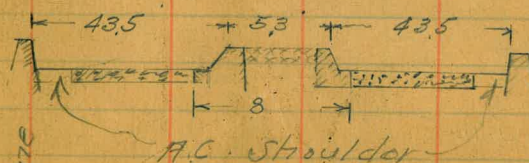 43.5 5.3 43.5
8
A.C. Shoulder